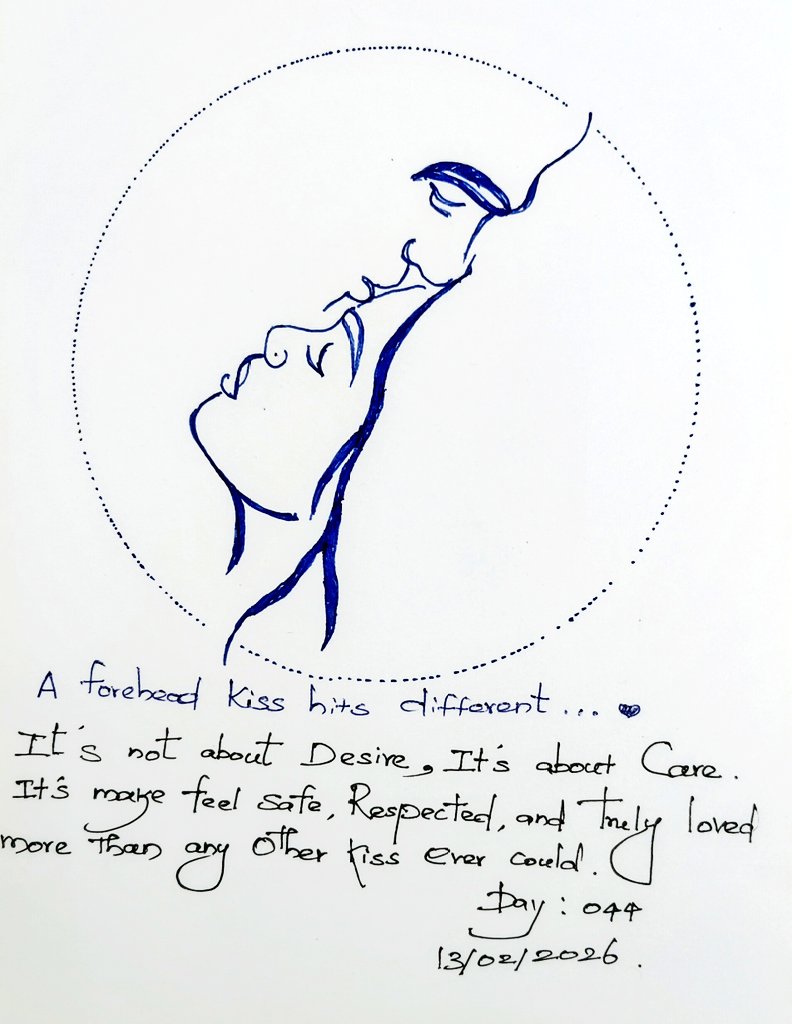 A forehead kiss hits different... ♥
It's not about Desire, It's about Care.
It's make feel safe, Respected, and Truly loved
more Than any Other kiss ever could.
Day : 044
13/02/2026.